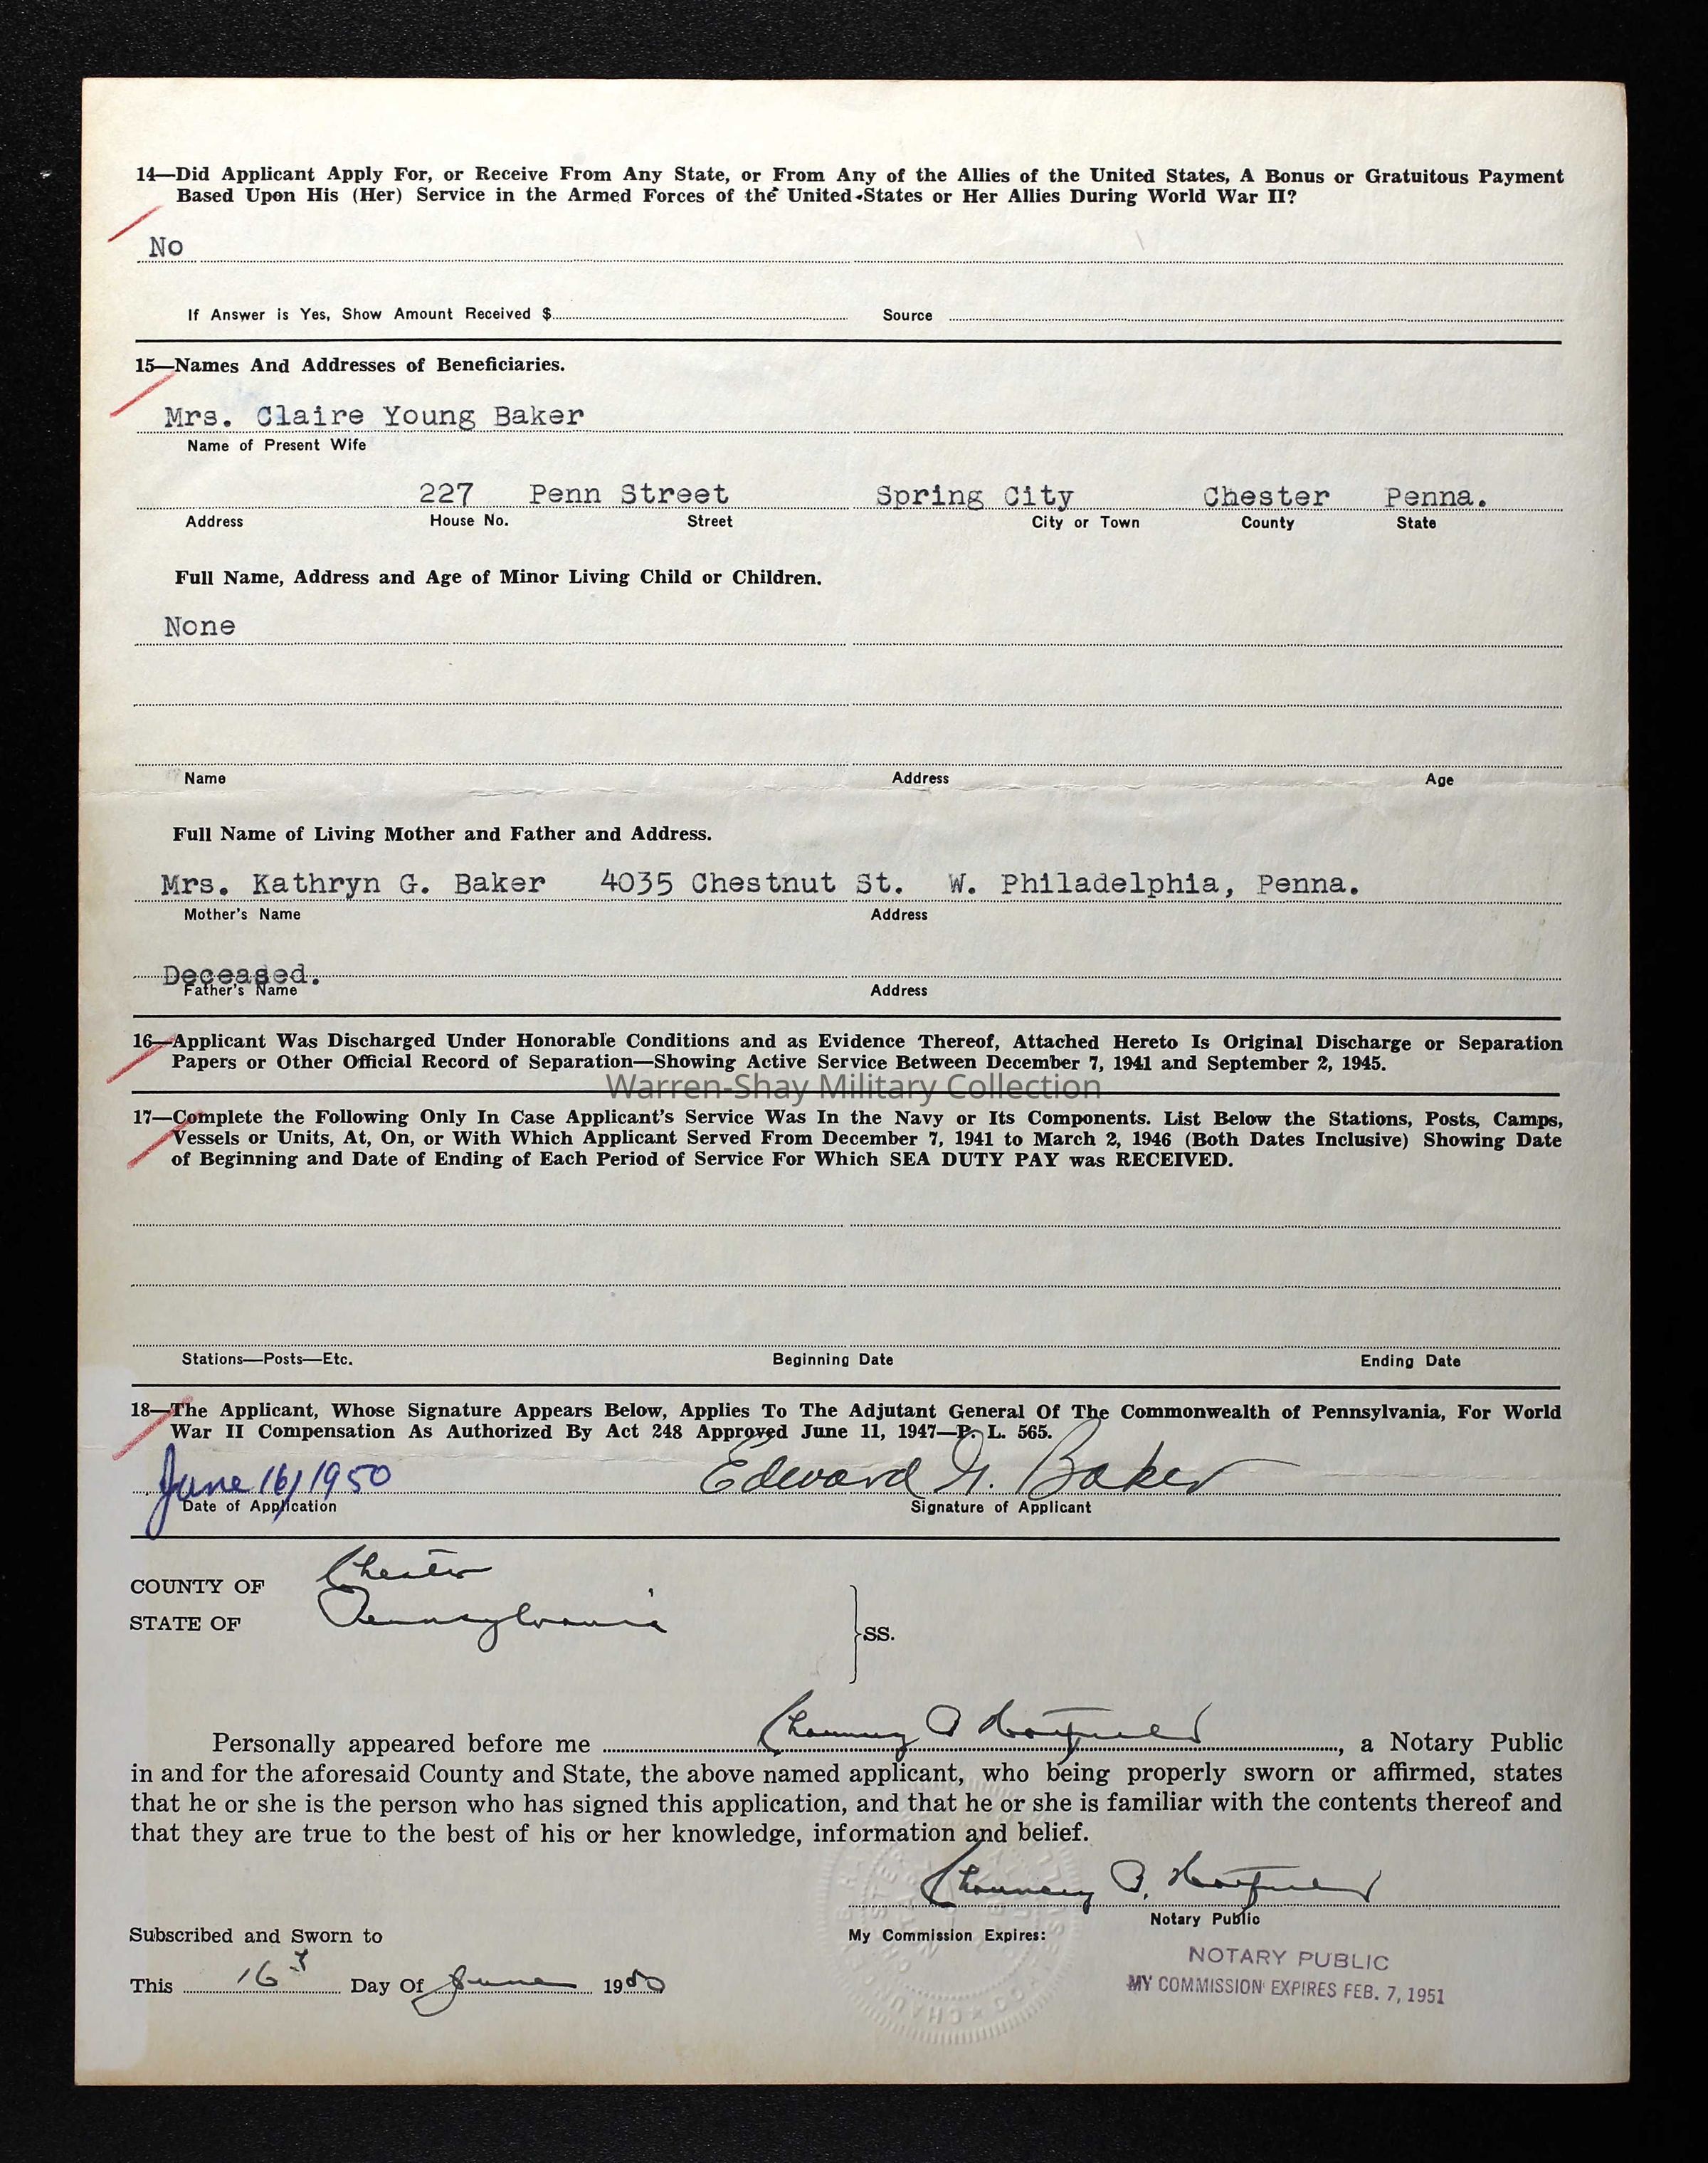 14—Did Applicant Apply For, or Receive From Any State, or From Any of the Allies of the United States, A Bonus or Gratuitous Payment
Based Upon His (Her) Service in the Armed Forces of the United States or Her Allies During World War II?
No
If Answer is Yes, Show Amount Received $ Source
15—Names And Addresses of Beneficiaries.
Mrs. Claire Young Baker
Name of Present Wife
227 Penn Street Spring City Chester Penna.
Address House No. Street City or Town County State
Full Name, Address and Age of Minor Living Child or Children.
None
Name Address Age
Full Name of Living Mother and Father and Address.
Mrs. Kathryn G. Baker 4035 Chestnut St. W. Philadelphia, Penna.
Mother's Name Address
Deceased.
Father's Name Address
16—Applicant Was Discharged Under Honorable Conditions and as Evidence Thereof, Attached Hereto Is Original Discharge or Separation
Papers or Other Official Record of Separation—Showing Active Service Between December 7, 1941 and September 2, 1945.
Warren-Shay Military Collection
17—Complete the Following Only In Case Applicant's Service Was In the Navy or Its Components. List Below the Stations, Posts, Camps,
Vessels or Units, At, On, or With Which Applicant Served From December 7, 1941 to March 2, 1946 (Both Dates Inclusive) Showing Date
of Beginning and Date of Ending of Each Period of Service For Which SEA DUTY PAY was RECEIVED.
Stations—Posts—Etc. Beginning Date Ending Date
18—The Applicant, Whose Signature Appears Below, Applies To The Adjutant General Of The Commonwealth of Pennsylvania, For World
War II Compensation As Authorized By Act 248 Approved June 11, 1947—P. L. 565.
June 16, 1950 Edward G. Baker
Date of Application Signature of Applicant
COUNTY OF Chester
STATE OF Pennsylvania
SS.
Personally appeared before me Chauncey, a Notary Public
in and for the aforesaid County and State, the above named applicant, who being properly sworn or affirmed, states
that he or she is the person who has signed this application, and that he or she is familiar with the contents thereof and
that they are true to the best of his or her knowledge, information and belief.
Chauncey
Notary Public
Subscribed and Sworn to My Commission Expires:
NOTARY PUBLIC
This 16 Day Of June 1950
MY COMMISSION EXPIRES FEB. 7, 1951